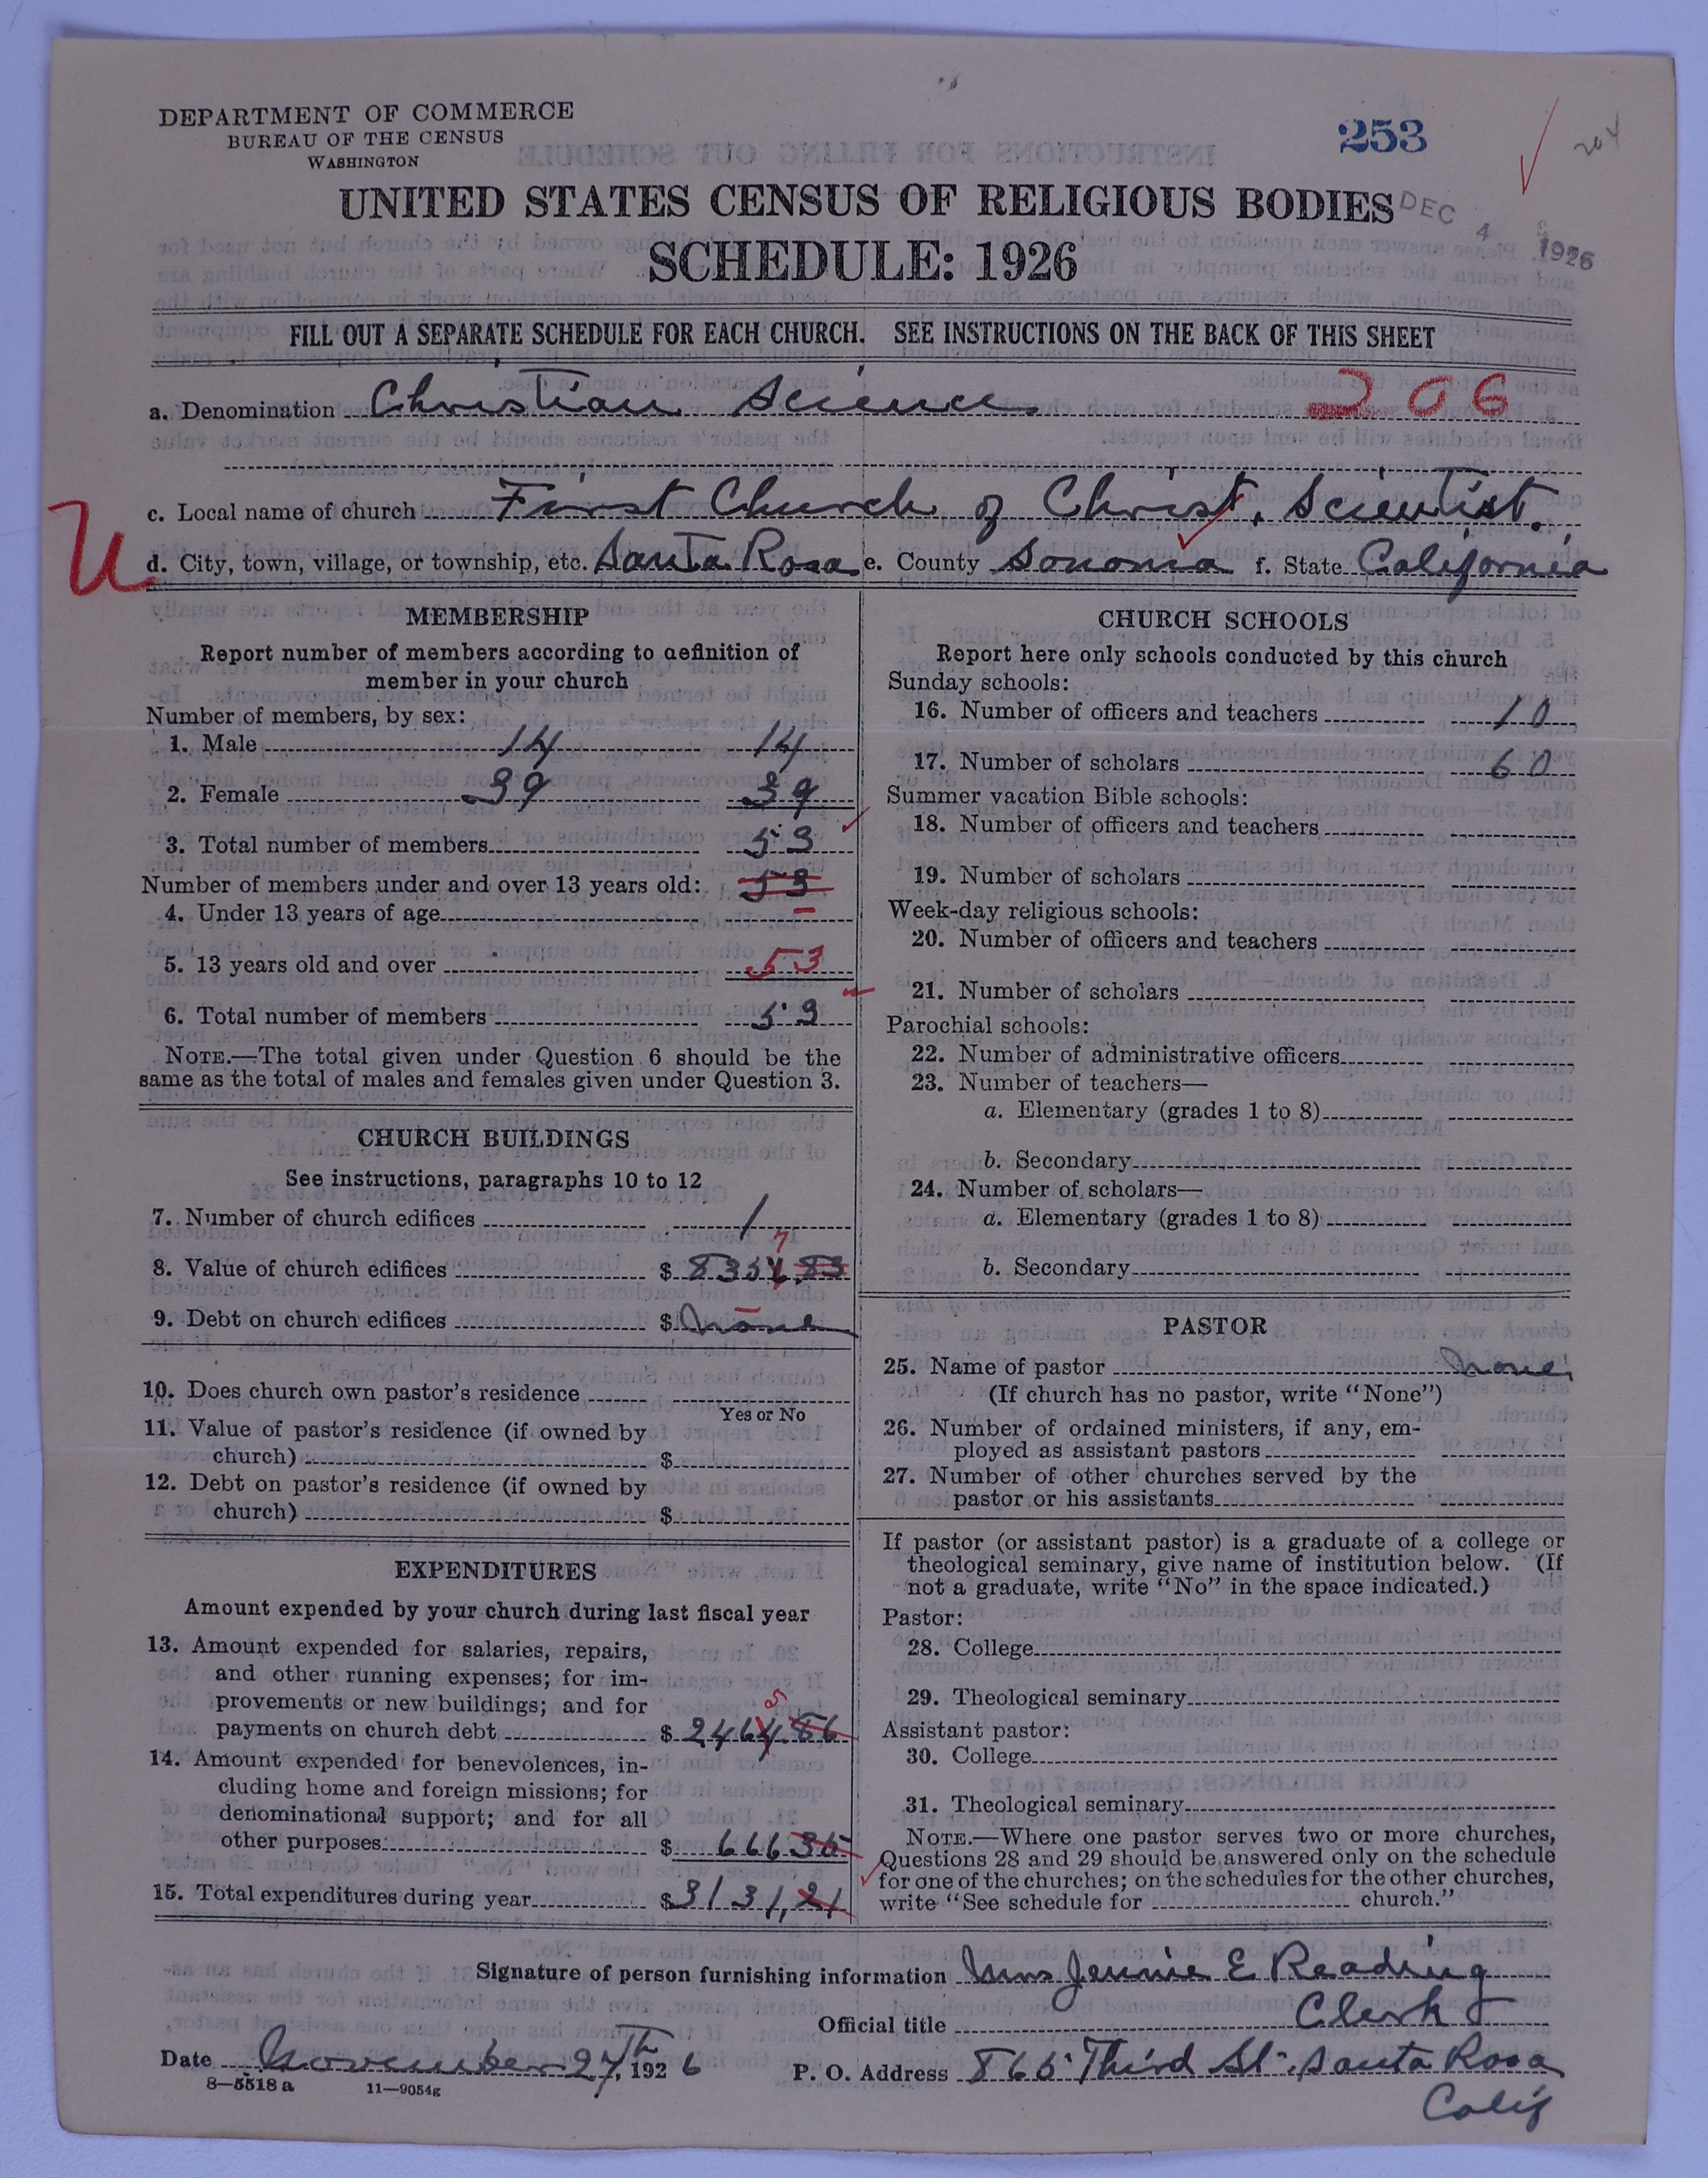 DEPARTMENT OF COMMERCE
BUREAU OF THE CENSUS
WASHINGTON
253
204
UNITED STATES CENSUS OF RELIGIOUS BODIES
DEC 4 1926
SCHEDULE: 1926
FILL OUT A SEPARATE SCHEDULE FOR EACH CHURCH. SEE INSTRUCTIONS ON THE BACK OF THIS SHEET
a. Denomination Christian Science. 206
c. Local name of church First Church of Christ, Scientist.
U
d. City, town, village, or township, etc. Santa Rosa e. County Sonoma f. State California
MEMBERSHIP
Report number of members according to definition of
member in your church
Number of members, by sex:
1. Male 14 14
2. Female 39 39
3. Total number of members 53
Number of members under and over 13 years old: 53
4. Under 13 years of age –
5. 13 years old and over 53
6. Total number of members 53
NOTE.—The total given under Question 6 should be the
same as the total of males and females given under Question 3.
CHURCH BUILDINGS
See instructions, paragraphs 10 to 12
7. Number of church edifices 1
7
8. Value of church edifices $ 8356.83
9. Debt on church edifices $ None
10. Does church own pastor's residence
Yes or No
11. Value of pastor's residence (if owned by
church) $
12. Debt on pastor's residence (if owned by
church) $
EXPENDITURES
Amount expended by your church during last fiscal year
13. Amount expended for salaries, repairs,
and other running expenses; for im-
provements or new buildings; and for
5
payments on church debt $ 2464.86
14. Amount expended for benevolences, in-
cluding home and foreign missions; for
denominational support; and for all
other purposes $ 666 35
15. Total expenditures during year $ 3131,21
CHURCH SCHOOLS
Report here only schools conducted by this church
Sunday schools:
16. Number of officers and teachers 10
17. Number of scholars 60
Summer vacation Bible schools:
18. Number of officers and teachers
19. Number of scholars
Week-day religious schools:
20. Number of officers and teachers
21. Number of scholars
Parochial schools:
22. Number of administrative officers
23. Number of teachers—
a. Elementary (grades 1 to 8)
b. Secondary
24. Number of scholars—
a. Elementary (grades 1 to 8)
b. Secondary
PASTOR
25. Name of pastor None
(If church has no pastor, write "None")
26. Number of ordained ministers, if any, em-
ployed as assistant pastors
27. Number of other churches served by the
pastor or his assistants
If pastor (or assistant pastor) is a graduate of a college or
theological seminary, give name of institution below. (If
not a graduate, write "No" in the space indicated.)
Pastor:
28. College
29. Theological seminary
Assistant pastor:
30. College
31. Theological seminary
NOTE.—Where one pastor serves two or more churches,
Questions 28 and 29 should be answered only on the schedule
for one of the churches; on the schedules for the other churches,
write "See schedule for church."
Signature of person furnishing information Mrs Jennie E Reading
Official title Clerk
Date November 27th, 1926 P. O. Address 865 Third St. Santa Rosa
Calif
8—5518 a 11—9054g